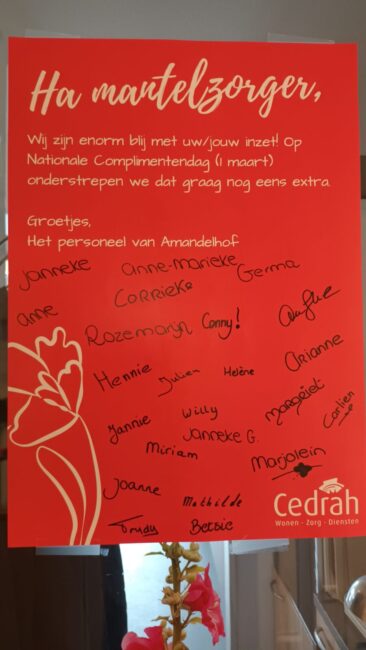 Ha mantelzorger,
Wij zijn enorm blij met uw/jouw inzet! Op
Nationale Complimentendag (1 maart)
onderstrepen we dat graag nog eens extra.
Groetjes,
Het personeel van Amandelhof
Janneke Anne-Marieke Germa
Anne Corrieke
Rozemarijn Conny!
Hennie Julien Helène Arianne
Jannie Willy Margriet Carlien
Janneke G.
Miriam Marjolein
Joanne Mathilde
Trudy Betsie
Cedrah
Wonen - Zorg - Diensten